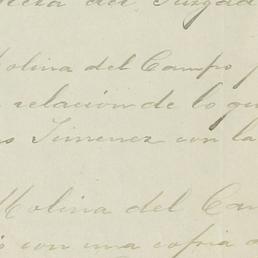 del Juzgad
Molina del Campo
relación de lo qu
Jimenez con la
Molina del Cam
con una copia d